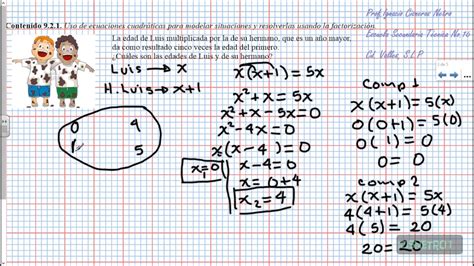 Contenido 9.2.1. Uso de ecuaciones cuadráticas para modelar situaciones y resolverlas usando la factorización.
La edad de Luis multiplicada por la de su hermano, que es un año mayor,
da como resultado cinco veces la edad del primero.
¿Cuáles son las edades de Luis y de su hermano?
Prof. Ignacio Cisneros Neira
Escuela Secundaria Técnica No.
Cd. Valles, S.L.P
Luis → x
H. Luis → x+1
0 4
1 5
x(x+1) = 5x
x²+x = 5x
x²+x-5x=0
x²-4x=0
x(x-4)=0
x₁=0
x-4=0
x=0+4
x₂=4
Comp 1
x(x+1)=5(x)
0(0+1)=0
0(1)=0
0=0
comp 2
x(x+1)=5x
4(4+1)=5(4)
4(5)=20
20=20